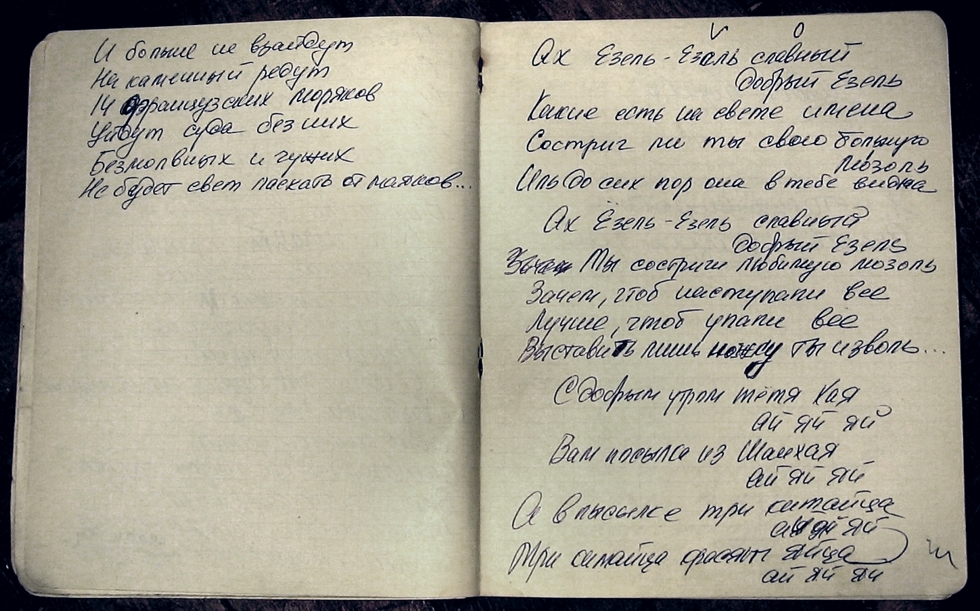 И больше не взайдут
На каменный редут
14 французских моряков
Уйдут суда без них
Безмолвных и чужих
Не будет свет ласкать от маяков...
Ах Езель-Езель славный
Добрый Езель
Какие есть на свете имена
Состриг ли ты свою большую
мозоль
Иль до сих пор она в тебе видна
Ах Ёзель-Езель славный
Добрый Езель
Зачем Ты состриги любимую мозоль
Зачем, чтоб наступали все
Лучше, чтоб упали все
Выставить лишь ножку ты изволь...
С Добрым утром тётя Хая
ай яй яй
Вам посылка из Шанхая
ай яй яй
А в посылке три китайца
ай яй яй
Три китайца красят яйца
ай яй яй